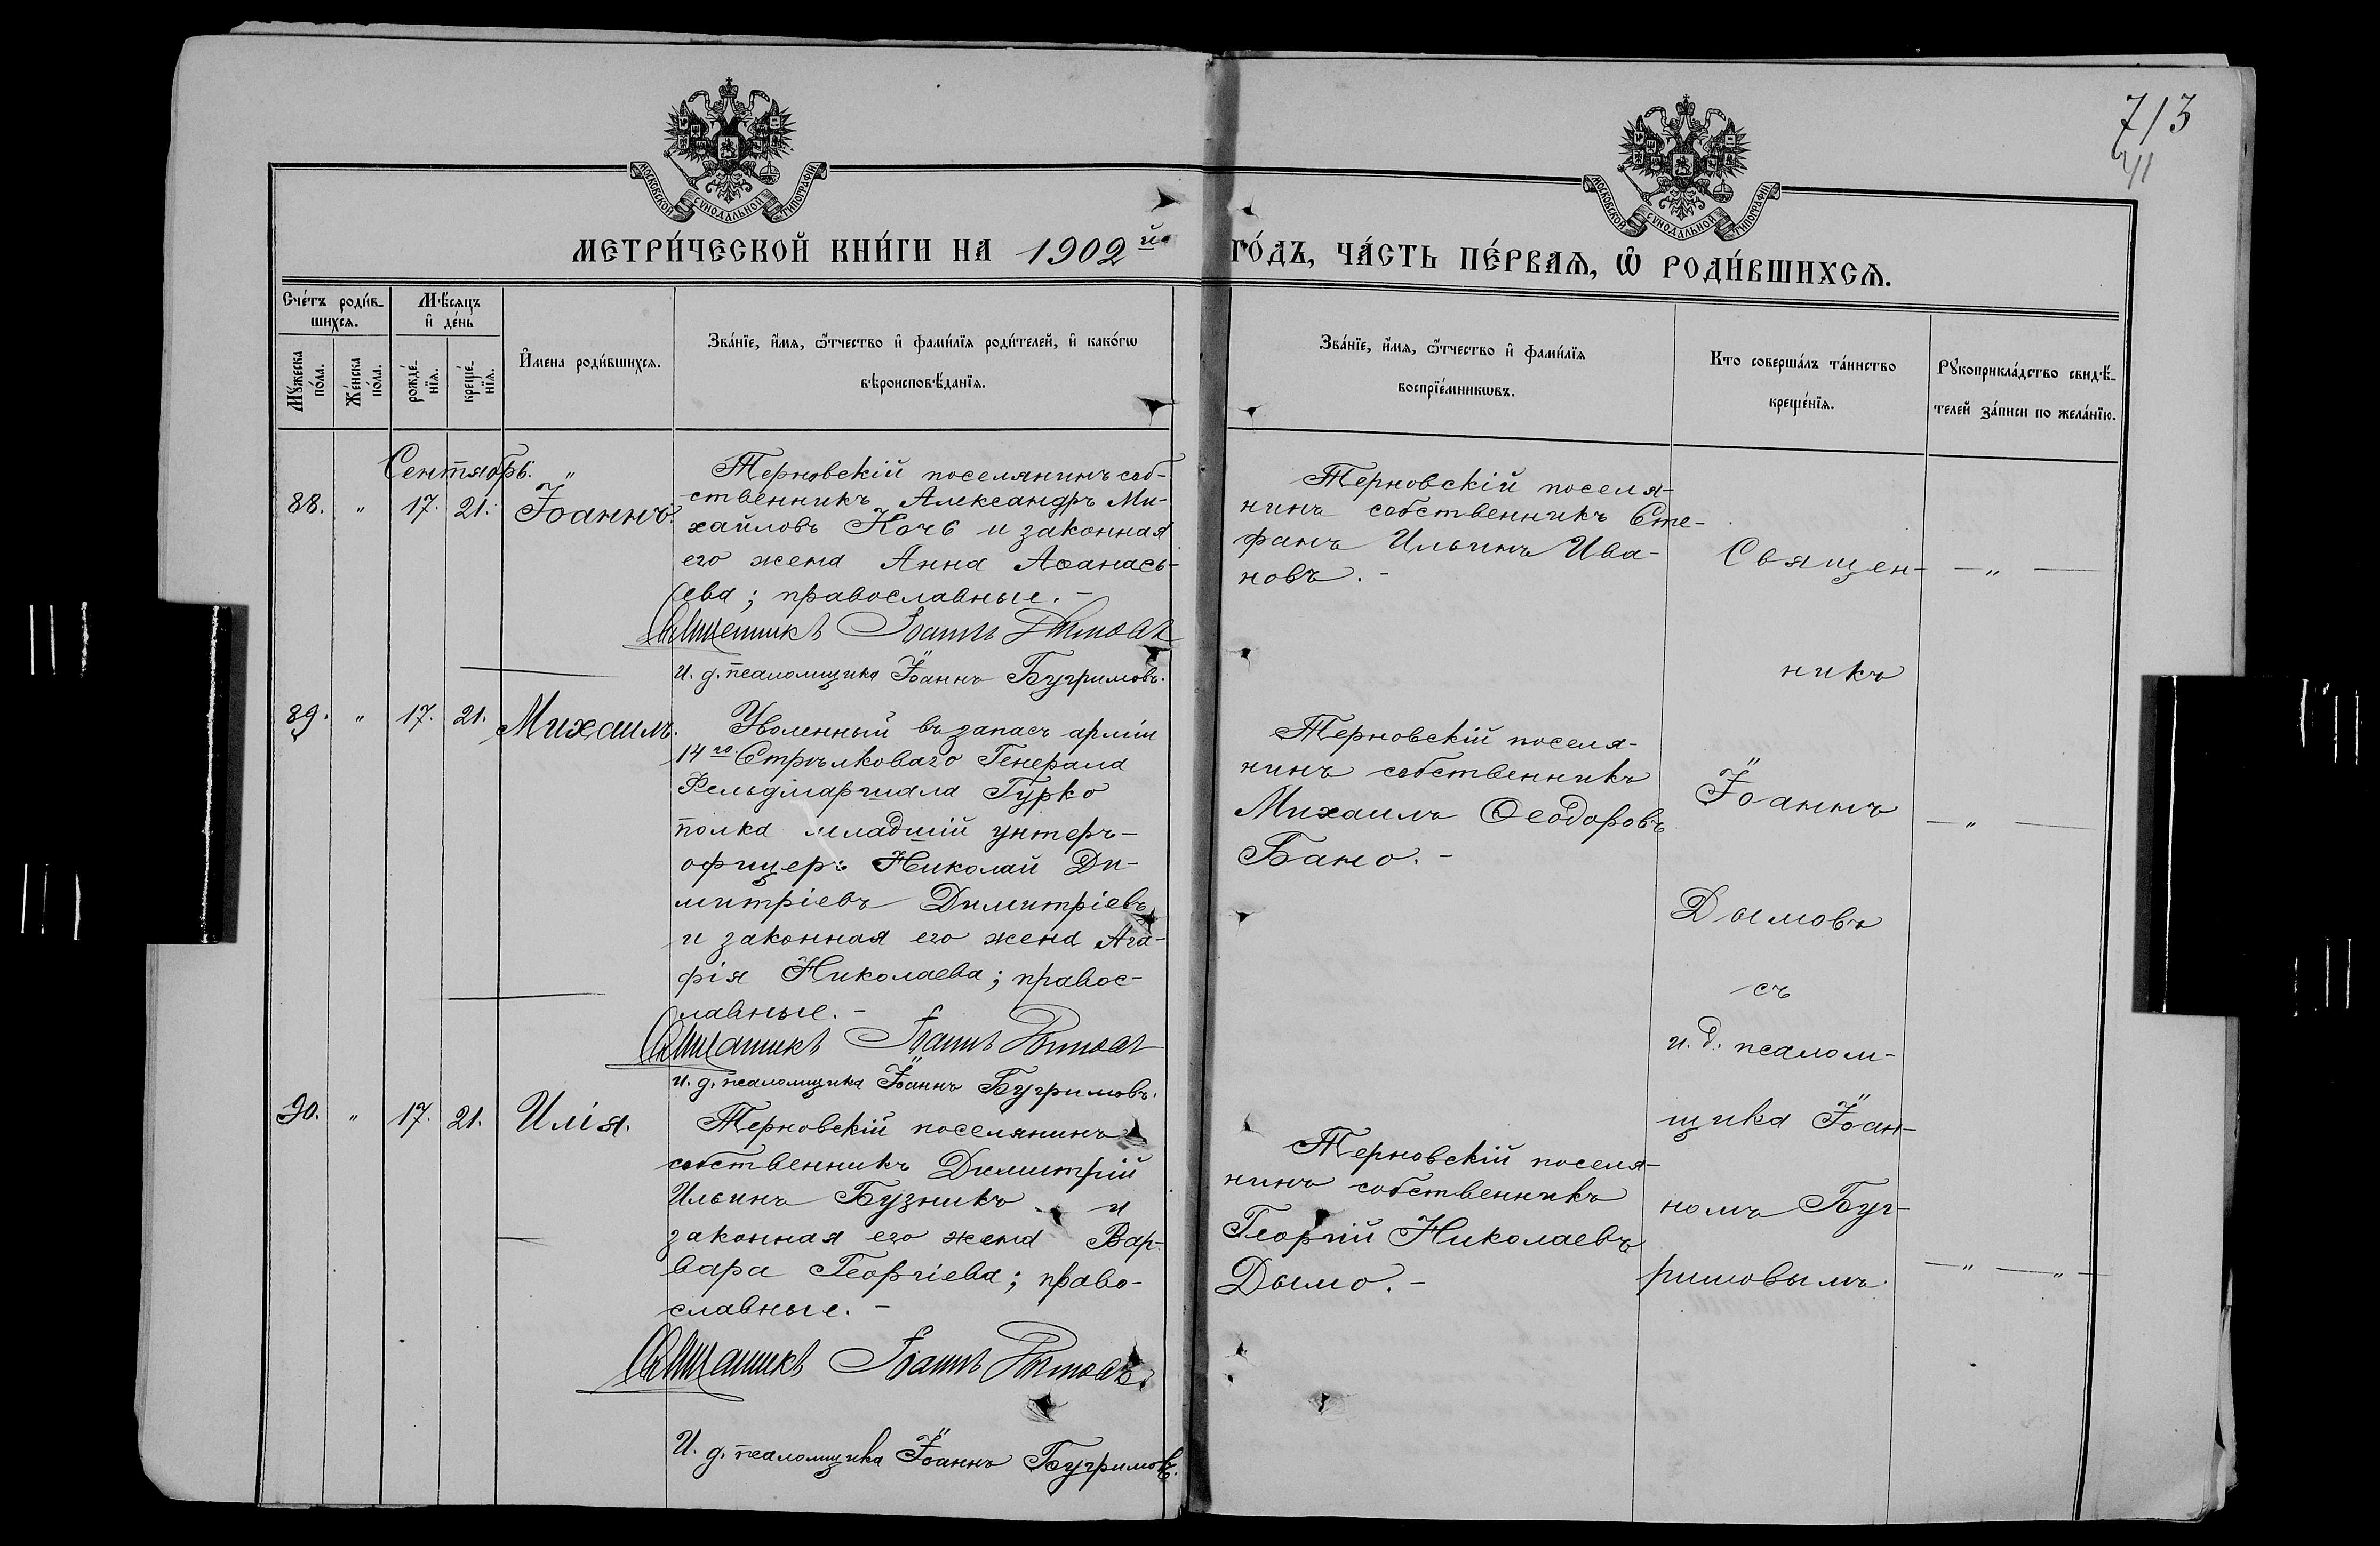 713
41
МОСКОВСКОЙ СѴНОДАЛЬНОЙ ТИПОГРАФІИ
МОСКОВСКОЙ СѴНОДАЛЬНОЙ ТИПОГРАФІИ
МЕТРИ́ЧЕСКОЙ КНИ́ГИ НА 1902й
ГО́ДЪ, ЧА́СТЬ ПЕ́РВАѦ, Ѡ҆ РОДИ́ВШИХСѦ.
Сче́тъ роди́в-
шихсѧ.
Мѣ́сяцъ
и҆ де́нь
Мꙋ́жеска
по́ла.
Же́нска
по́ла.
рожде́-
нїѧ.
креще́-
нїѧ.
И҆мена роди́вшихсѧ.
Зва́нїе, и҆́мѧ, ѻ҆́тчество и҆ фами́лїѧ роди́телей, и҆ како́гѡ
вѣроисповѣ́данїѧ.
Зва́нїе, и҆́мѧ, ѻ҆́тчество и҆ фами́лїѧ
воспрїе́мникѡвъ.
Кто соверша́лъ та́инство
креще́нїѧ.
Рꙋкоприкла́дство свидѣ́-
телей за́писи по жела́нїю.
Сентябрь. "
88. " 17. 21. Іоаннъ.
Терновскій поселянинъ соб-
ственникъ Александръ Ми-
хайловъ Кочь и законная
его жена Анна Аѳанась-
ева; православные.-
Священникъ Іоаннъ Дымовъ
И. д. псаломщика Іоаннъ Бугримовъ.
Терновскій поселя-
нинъ собственникъ Сте-
фанъ Ильинъ Ива-
новъ.-
89. " 17. 21. Михаилъ.
Уволенный въ запасъ арміи
14го Стрѣлковаго Генерала
Фельдмаршала Гурко
полка младшій унтеръ-
офицеръ Николай Ди-
митріевъ Димитріевъ
и законная его жена Ага-
фія Николаева; правос-
лавные.-
Священникъ Іоаннъ Дымовъ
И. д. псаломщика Іоаннъ Бугримовъ.
Терновскій поселя-
нинъ собственникъ
Михаилъ Ѳеодоровъ
Бано.-
90. " 17. 21. Илія.
Терновскій поселянинъ
собственникъ Димитрій
Ильинъ Бузникъ и
законная его жена Вар-
вара Георгіева; право-
славные.-
Священникъ Іоаннъ Дымовъ.
И. д. псаломщика Іоаннъ Бугримовъ.
Терновскій поселя-
нинъ собственникъ
Георгій Николаевъ
Дымо.-
Священ-
никъ
Іоаннъ
Дымовъ
съ
и. д. псалом-
щика Іоан-
номъ Буг-
римовымъ.
— " —
— " —
— " — " —